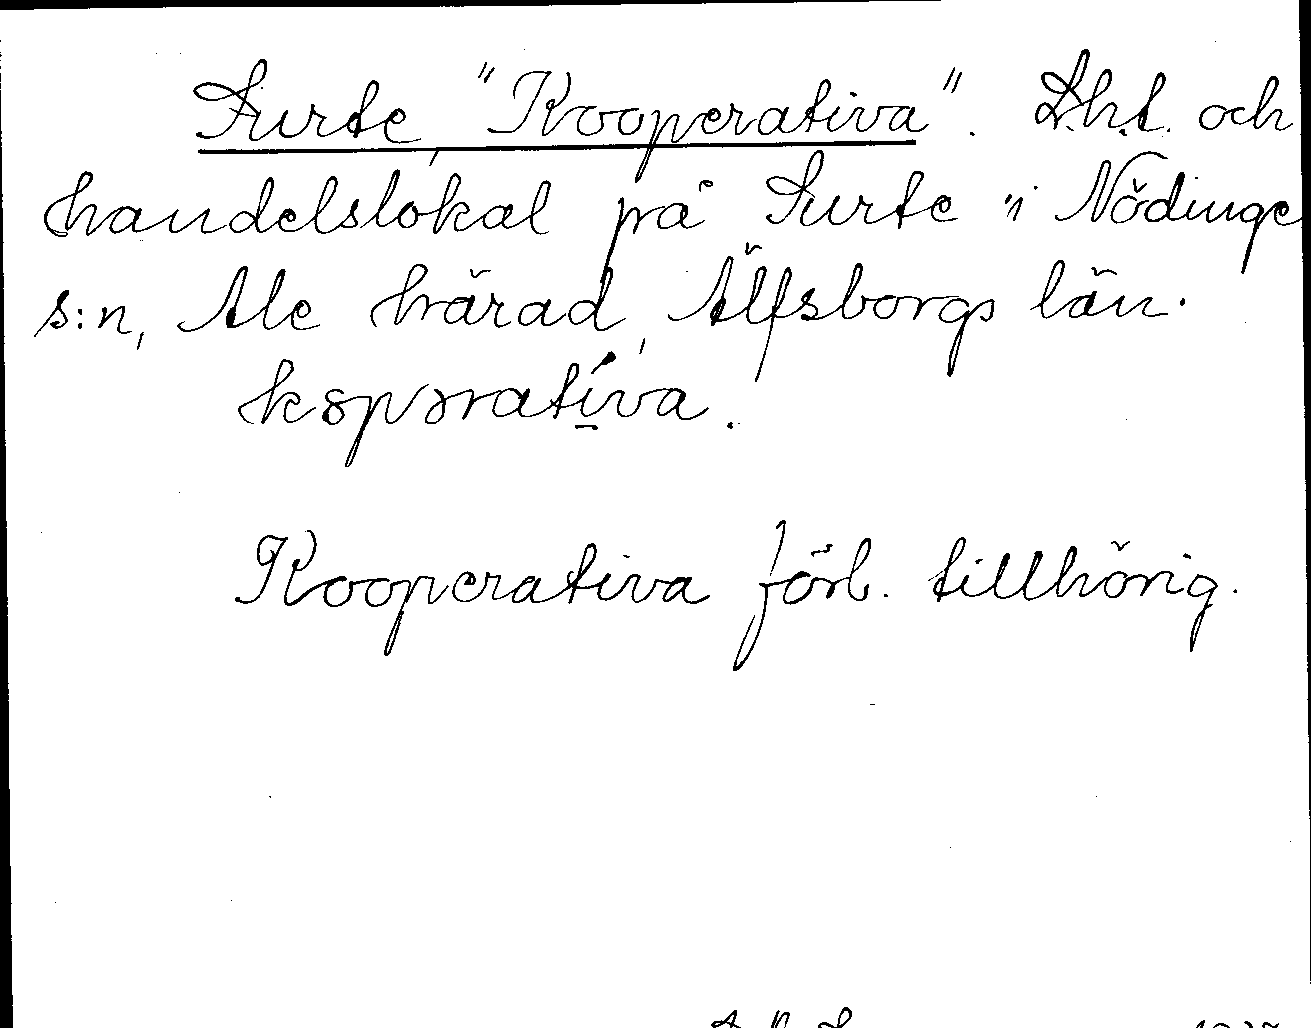 Surte, "Kooperativa". Lht. och
handelslokal på Surte i Nödinge
s:n, Ale härad, Älfsborgs län.
koporatíva.
Kooperativa förb. tillhörig.